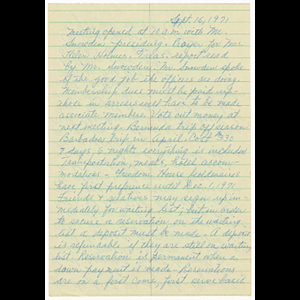 Sept. 16, 1971
Meeting opened at 10 A.M with Mr.
Snowden presiding. Prayer for Mrs
Helen Holmes. Treas. report read
by Mr. Snowden. Mr. Snowden spoke
of the good job the officers are doing.
Membership dues must be paid up
those in arrears will have to be made
associate members. Vote out money at
next meeting. Bermuda trip off season
Barbados trip in April. Cost
7 days, 6 nights everything is included
Transportation, meals, hotel accom-
modations - Freedom House members
have first preference until Dec. 1, 1971
Friends & relatives may sign up im-
mediately for waiting list, but in order
to secure a reservation on the waiting
list a deposit must be made. A deposit
is refundable if they are still on waiting
list. Reservation is permanent when a
down payment is made. Reservations
are on a first come, first serve basis